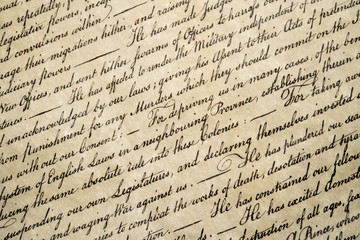 repeatedly, for
legislative powers, incapable
and convulsions within.
rage their migrations hither, and raising
udiciary powers.
New Offices, and sent hither swarms of Officers to harrass our
He has affected to render the Military independent of
d unacknowledged by our laws; giving his Assent to their Acts of pretended
from punishment for any Murders which they should commit on the
us without our Consent: — For depriving us in many cases, of the benefits
System of English Laws in a neighbouring Province, establishing therein
ducing the same absolute rule into these Colonies: — For taking
suspending our own Legislatures, and declaring themselves invested
and waging War against us. — He has plundered our seas
to compleat the works of death, desolation and
He has constrained our fellow
He has excited domestic
destruction of all ages,